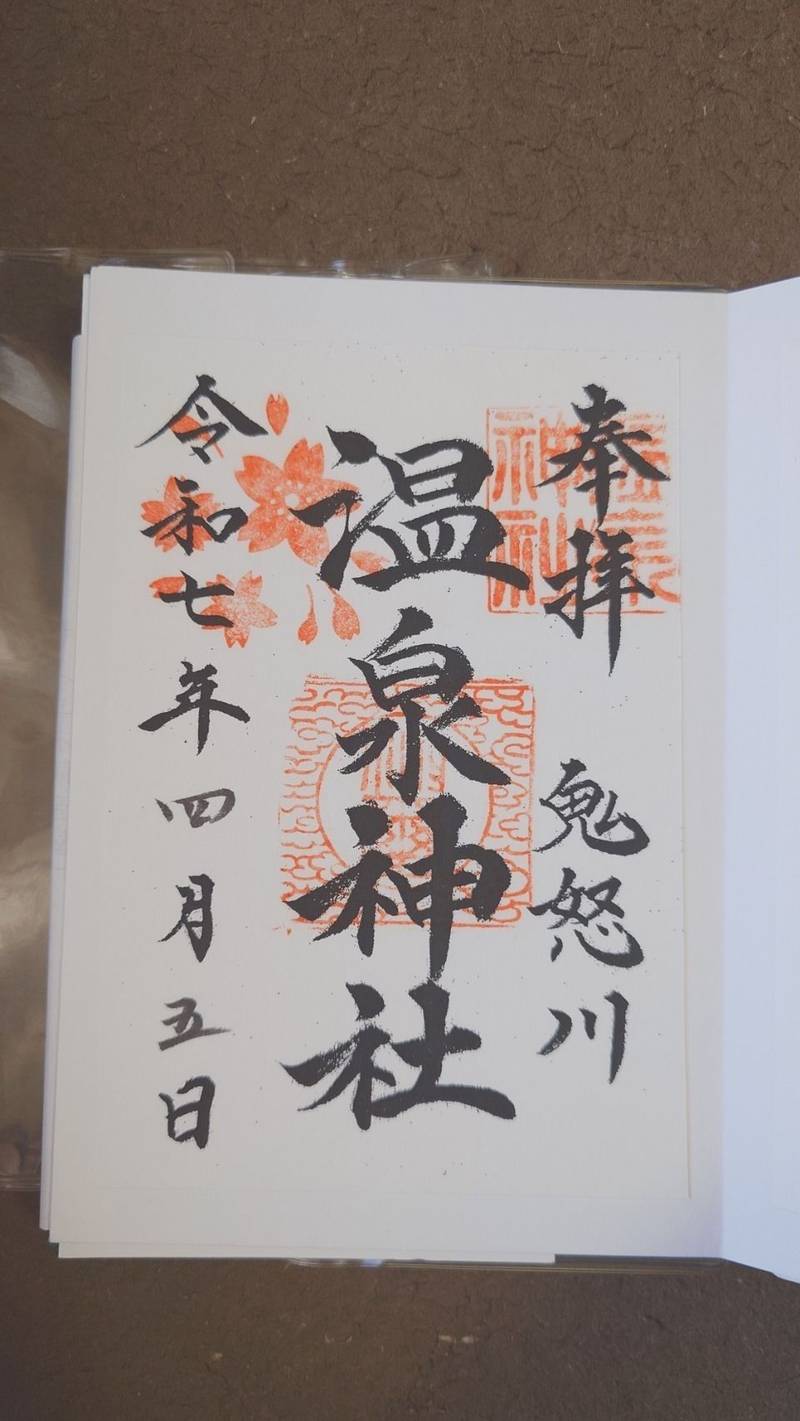 奉拝
鬼怒川
温泉神社
令和七年四月五日